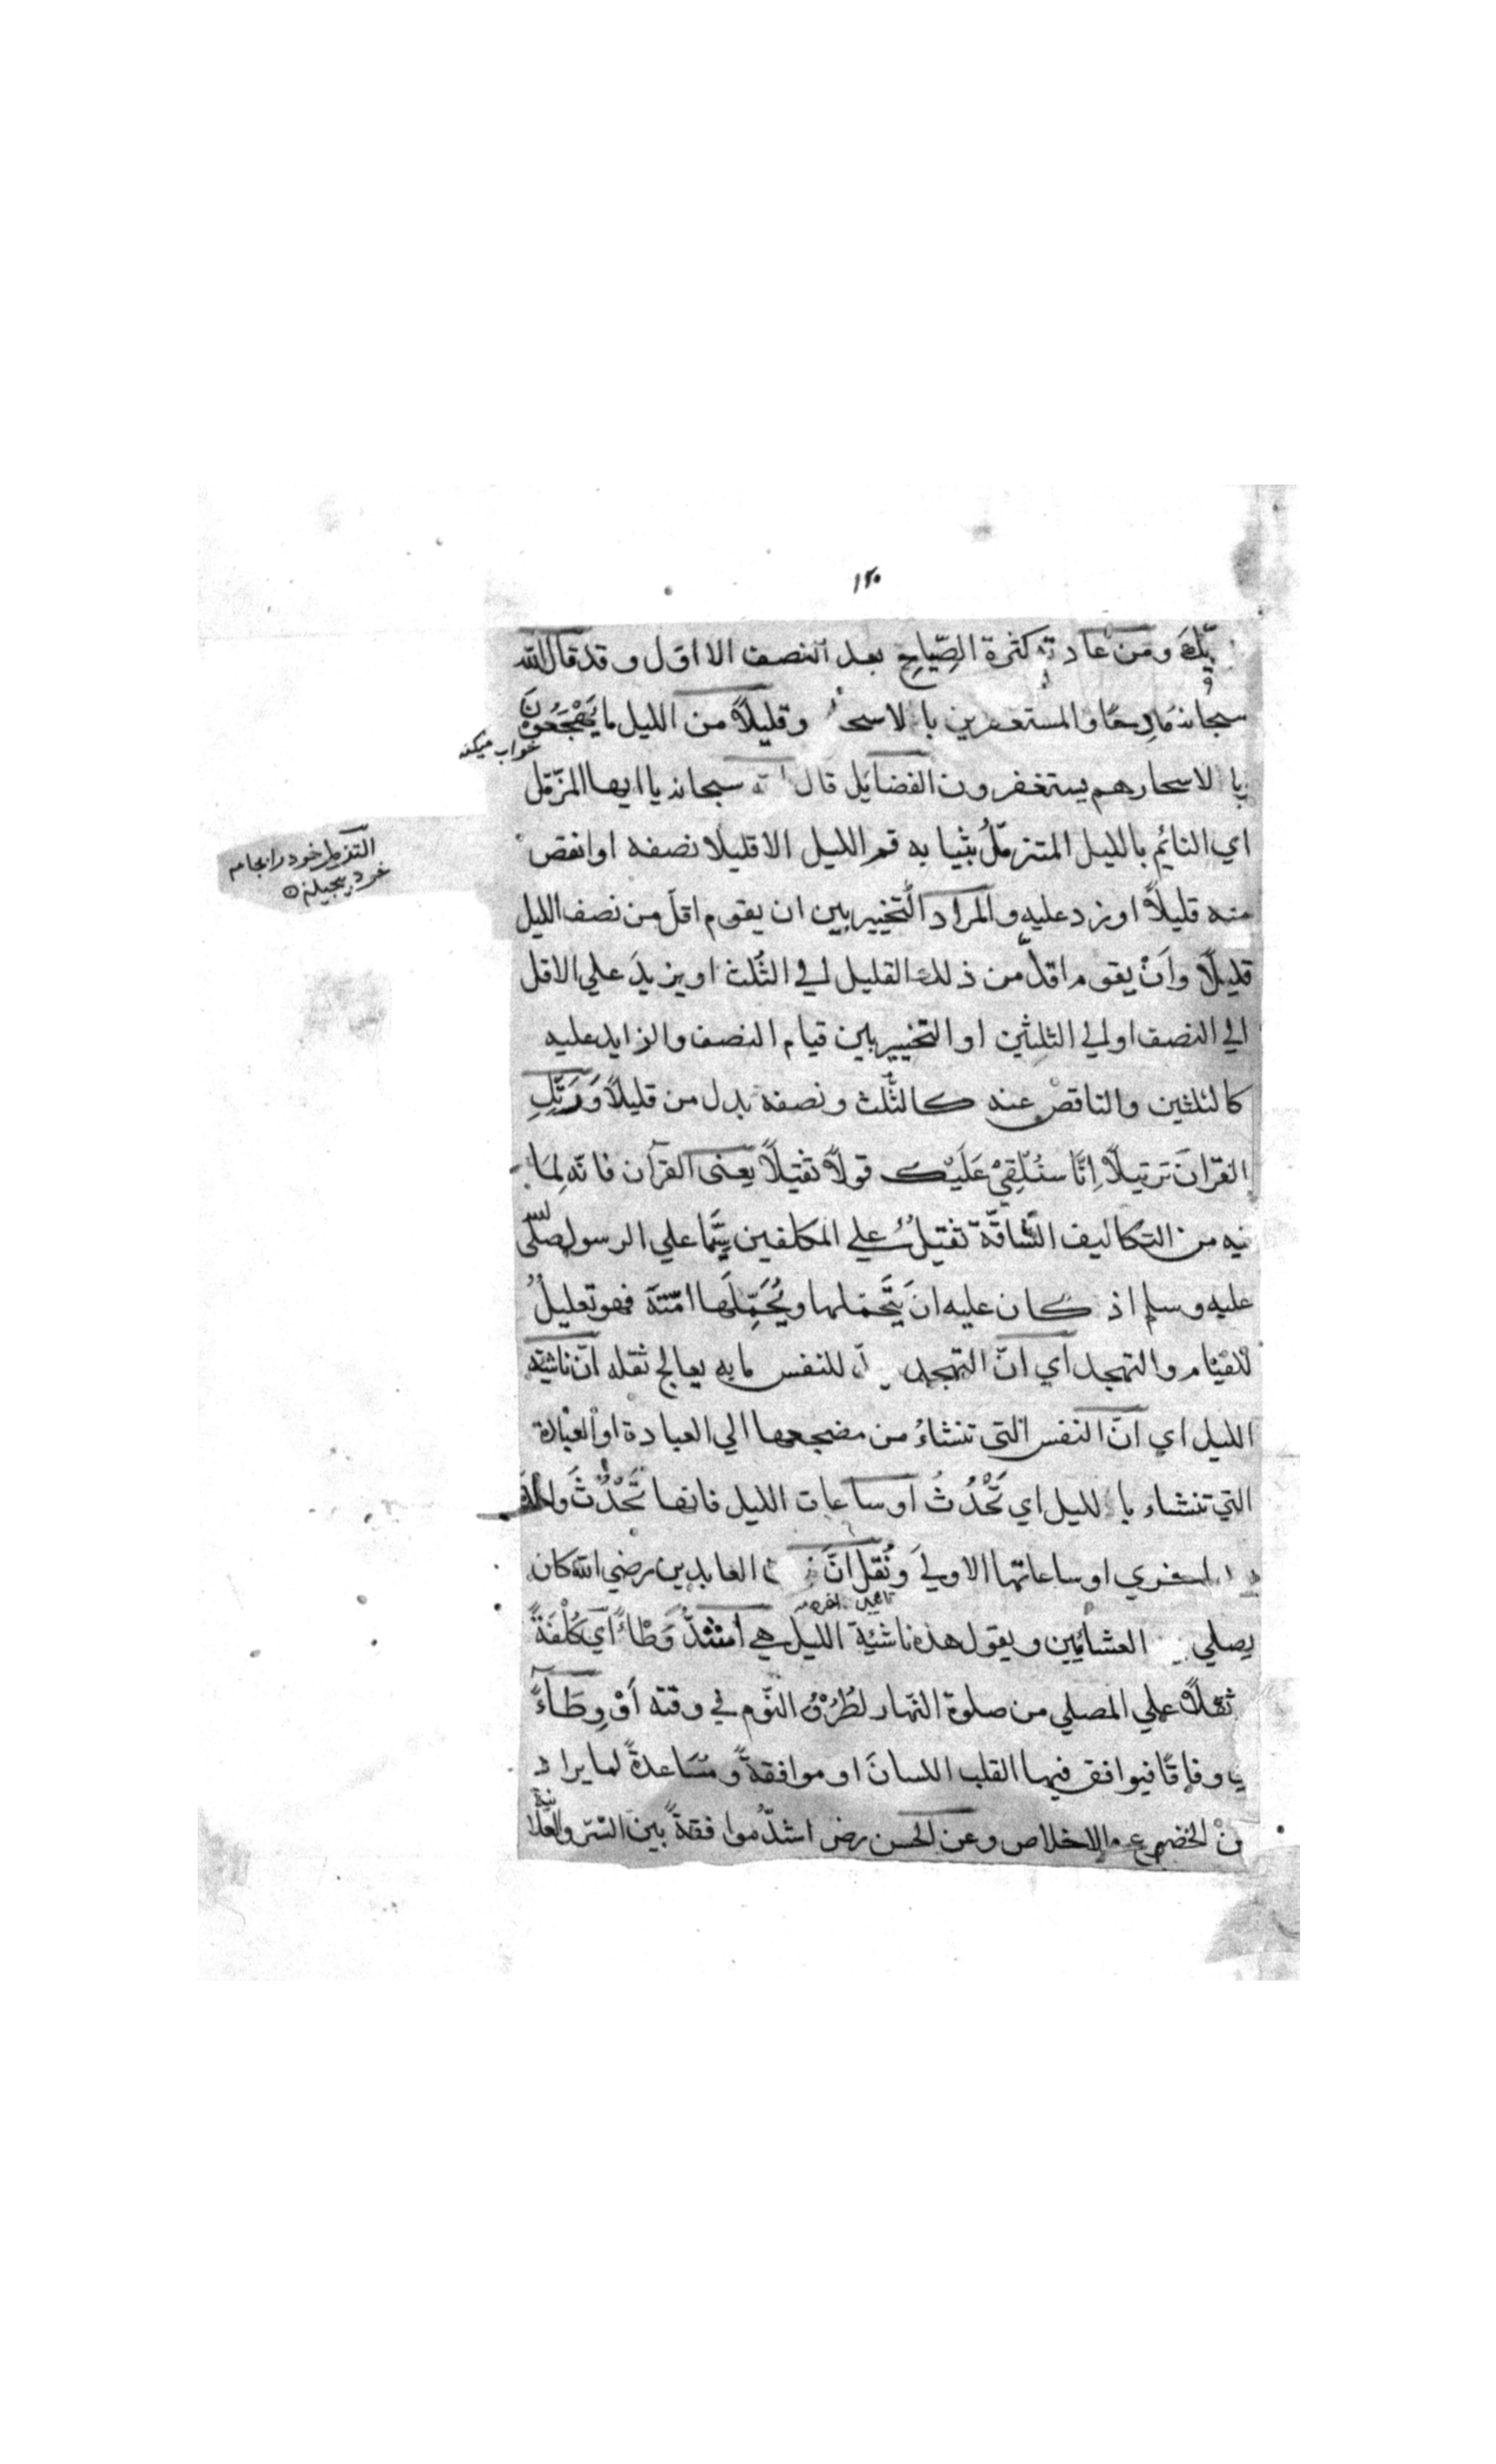 ١٢٠
ومن عادته كثرة الصِّيَاحِ بعد النصف الااوّل وقد قال الله
سبحانه مَادِحًا والمستغفرين بالاسحار وقليلاً من الليل ما يَهْجَعُونَ
خواب ميكند
بالاسحارهم يستغفرون الفضايل قال الله سبحانه يا ايها المزّمّل
اي النائم بالليل المتزمّلُ بثيابه قم الليل الا قليلا نصفه او انقص
منه قليلاً او زد عليه والمراد التخيير بين ان يقوم اقل من نصف الليل
قليلاً وَاَنْ يقوم اقلّ من ذلك القليل الي الثُلث او يزيدَ علي الاقل
الي النصف او الي الثلثين او التخيير بين قيام النصف والزايد عليه
كالثلثين والناقص عنه كالثُلث ونصفه بدل من قليلاً وَرَتِّلِ
القرْانَ ترتيلاً اِنَّا سَنُلْقِيْ عَلَيْكَ قولاً ثقيلاً يعنى القرآن فانّه لِمَا
فيه من التكاليف الشّاقّة ثقيلٌ علي المكلفين سِيَّما علي الرسول صلّى الله
عليه وسلم اذ كان عليه ان يَتَحَمَّلها ويُحَمِّلَها امّتَه فهو تعليلٌ
للقيام والتهجد اي انّ التهجد للنفس ما به يعالج ثقله انّ ناشئة
الليل اي انّ النفس التى تنشاءُ من مضجعها الي العبادة او العبادة
التي تنشاء بالليل اي تَحْدُثُ او ساعات الليل فانها تَحْدُثُ واحدة
اخري او ساعاتها الاولي ونُقل انّ العابدين رضي الله كان
يصلي العشائين ويقول هذه ناشئة الليل هي اَشَدُّ وَطْاءً اي كُلْفَةً
ثقلاً علي المصلي من صلوة النّهار لطُرُوْقِ النّوم في وقته اَوْ وِطَاءً
وفاقًا فيوافق فيها القلب اللسانَ او موافقةً ومُسَاعدةً لما يراد
والاخلاص وعن الحسن رض اشدُّ موافقةً بين السّرّ والعلانية
التزمل خود را بجامه
خود پيچيدن